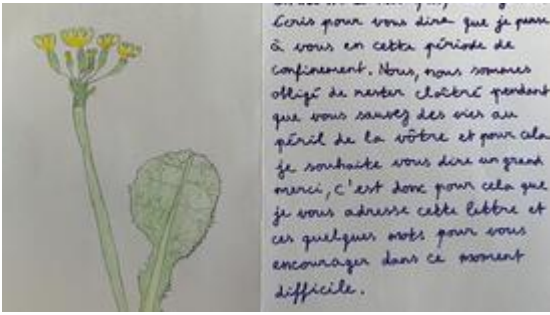 Écris pour vous dire que je pense
à vous en cette période de
confinement. Nous, nous sommes
obligé de rester cloîtré pendant
que vous sauvez des vies au
péril de la vôtre et pour cela
je souhaite vous dire un grand
merci, c'est donc pour cela que
je vous adresse cette lettre et
ces quelques mots pour vous
encourager dans ce moment
difficile.